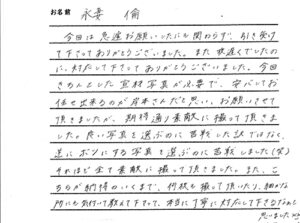 お名前 永妻 倫
今回は急遽お願いしたにも関わらず、引き受け
て下さってありがとうございました。また夜遅くでしたの
に、対応して下さってありがとうございました。今回
きちんとした宣材写真が必要で、安心してお
任せ出来るのが岸本さんだと思い、お願いさせて
頂きましたが、期待通り素敵に撮って頂きま
した。良い写真を選ぶのに苦戦した訳ではなく、
逆にボツにする写真を選ぶのに苦戦しました(笑)
それほど全て素敵に撮って頂きました。また、こ
ちらが納得のいくまで、何枚も撮って頂いたり、細かな
所にも気付いて教えて下さって、本当に丁寧に対応して下さるなぁと
思いました。